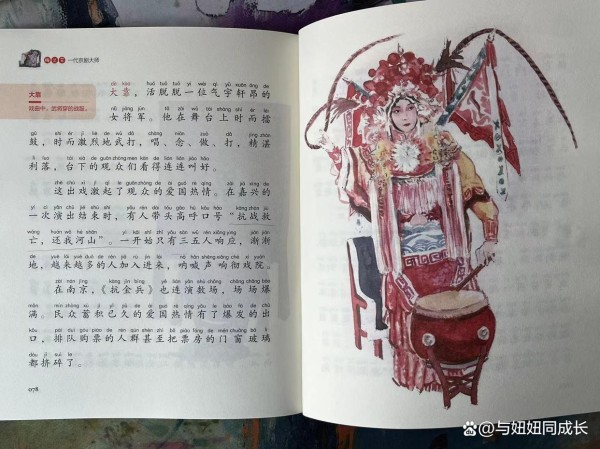 梅兰芳 一代京剧大师
大靠
戏曲中，武将穿的铠甲。
dà kào huó tuō tuō yí wèi qì yǔ xuān áng de
大靠，活脱脱一位气宇轩昂的
nǚ jiāng jūn tā zài wǔ tái shàng shí ér léi
女将军。他在舞台上时而擂
gǔ shí ér jī liè de wǔ dǎ chàng niàn zuò dǎ jīng zhàn
鼓，时而激烈地武打，唱、念、做、打，精湛
lì luo tái xià de guān zhòng men kàn de lián lián jiào hǎo
利落，台下的观众们看得连连叫好。
zhè chū xì jī qǐ le guān zhòng de ài guó rè qíng zài jiā xīng de
这出戏激起了观众的爱国热情。在嘉兴的
yí cì yǎn chū jié shù shí yǒu rén dài tóu gāo hū kǒu hào kàng zhàn jiù
一次演出结束时，有人带头高呼口号“抗战救
wáng huán wǒ hé shān yì kāi shǐ zhǐ yǒu sān wǔ rén xiǎng yìng jiàn jiàn
亡，还我河山”。一开始只有三五人响应，渐渐
de yuè lái yuè duō de rén jiā rù jìn lái nà hǎn shēng xiǎng chè xì yuàn
地，越来越多的人加入进来，呐喊声响彻戏院。
zài nán jīng kàng jīn bīng yě lián yǎn shù chǎng chǎng chǎng bào
在南京，《抗金兵》也连演数场，场场爆
mǎn mín zhòng xù jī yǐ jiǔ de ài guó rè qíng yǒu le bào fā de chū
满。民众蓄积已久的爱国热情有了爆发的出
kǒu pái duì gòu piào de rén qún shèn zhì bǎ piào fáng de mén chuāng bō li
口，排队购票的人群甚至把票房的门窗玻璃
dōu jǐ suì le
都挤碎了。
078
与妞妞同成长